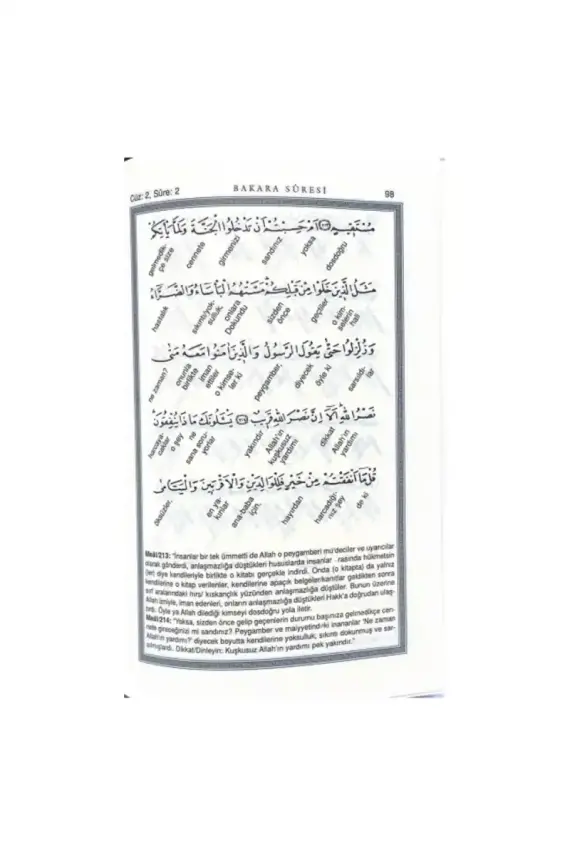 Cüz: 2, Sûre: 2 BAKARA SÛRESİ 98
مُسْتَقِيمٍ ﴿٢١٣﴾ اَمْ حَسِبْتُمْ اَنْ تَدْخُلُوا الْجَنَّةَ وَلَمَّا يَأْتِكُمْ
dosdoğru yoksa sandınız girmenizi cennete gelmedik- çe size
مَثَلُ الَّذِينَ خَلَوْا مِنْ قَبْلِكُمْ مَسَّتْهُمُ الْبَأْسَاءُ وَالضَّرَّاءُ
o kim- selerin hali geçtiler sizden önce onlara Dokundu sıkıntı/yok- sulluk, hastalık
وَزُلْزِلُوا حَتّٰى يَقُولَ الرَّسُولُ وَالَّذِينَ اٰمَنُوا مَعَهُ مَتٰى
sarsıldı- lar öyle ki diyecek peygamber, o kimse- ler ki iman ettiler onunla birlikte ne zaman?
نَصْرُ اللّٰهِ اَلَا اِنَّ نَصْرَ اللّٰهِ قَرِيبٌ ﴿٢١٤﴾ يَسْـَٔلُونَكَ مَاذَا يُنْفِقُونَ
Allah'ın yardımı dikkat Allah'ın kuşkusuz yardımı yakındır sana soru- yorlar ne o şey
قُلْ مَا اَنْفَقْتُمْ مِنْ خَيْرٍ فَلِلْوَالِدَيْنِ وَالْاَقْرَبِينَ وَالْيَتَامٰى
de ki harcadığı- nız şey hayırdan ana-baba için, en ya- kınlar öksüzler,
Meâl/213: "İnsanlar bir tek ümmetti de Allah o peygamberi mü'deciler ve uyarıcılar
olarak gönderdi, anlaşmazlığa düştükleri hususlarda insanlar rasında hükmetsin
(ler) diye kendileriyle birlikte o kitabı gerçekle indirdi. Onda (o kitapta) da yalnız
kendilerine o kitap verilenler, kendilerine apaçık belgeler/kanıtlar geldikten sonra
sırf aralarındaki hırs/ kıskançlık yüzünden anlaşmazlığa düştüler. Bunun üzerine
Allah izniyle, iman edenleri, onların anlaşmazlığa düştükleri Hakk'a doğrudan ulaş-
tırdı. Öyle ya Allah dilediği kimseyi dosdoğru yola iletir.
Meâl/214: "Yoksa, sizden önce gelip geçenlerin durumu başınıza gelmedikçe cen-
nete gireceğinizi mi sandınız? Peygamber ve maiyyetindeki inananlar 'Ne zaman
Allah'ın yardımı?' diyecek boyutta kendilerine yoksulluk, sıkıntı dokunmuş ve sar-
sılmışlardı. Dikkat/Dinleyin: Kuşkusuz Allah'ın yardımı pek yakındır."